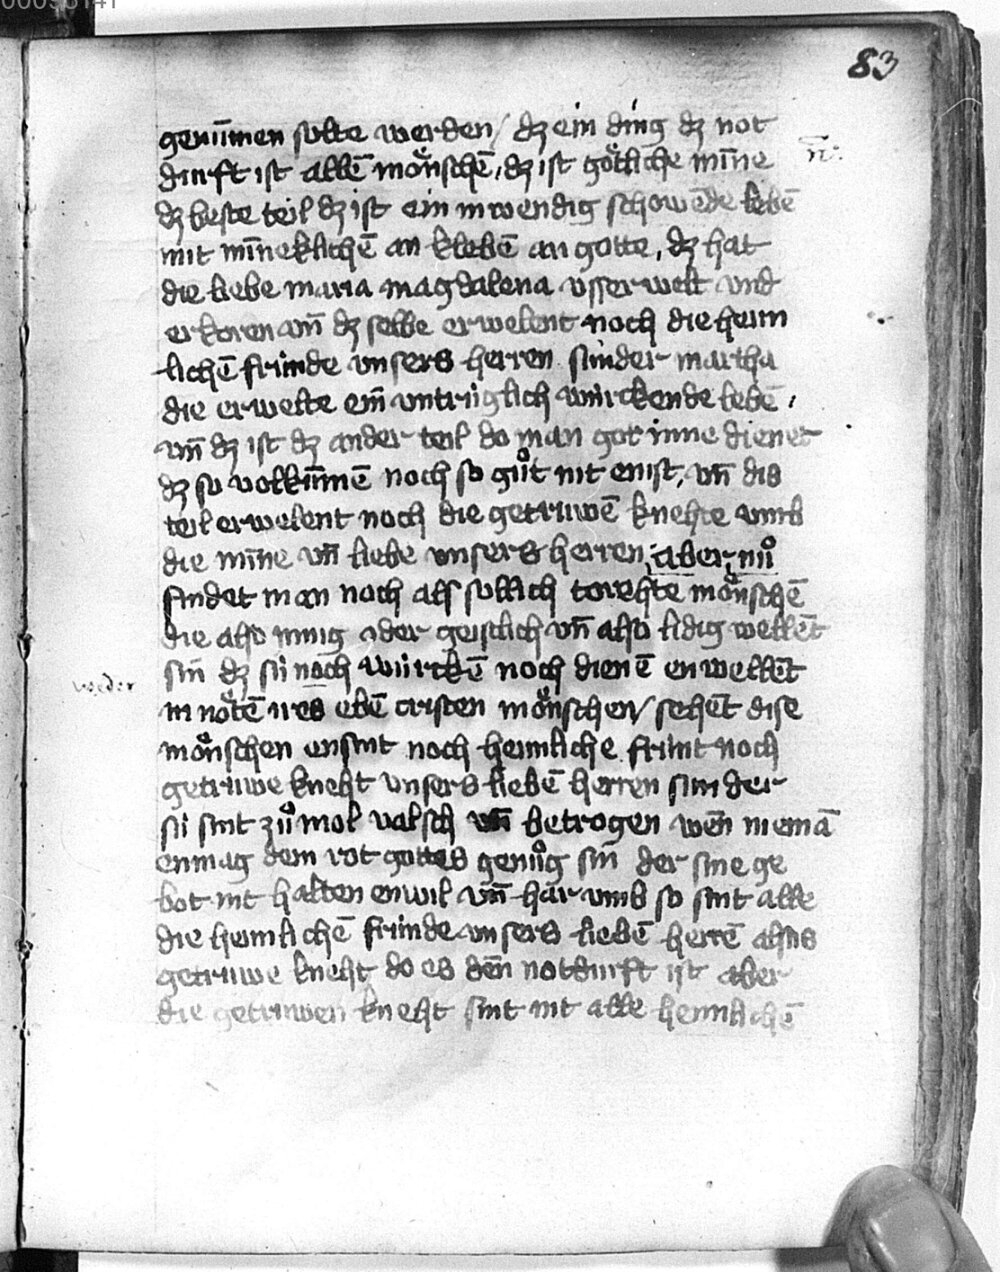 83
genūmen solte werden / dz ein ding dz not
durft ist allē moͤnschē, dz ist goͤtliche mīne
dz beste teil dz ist ein inwendig schowēde lebē
mit mīneklichē an klebē an gotte, dz hat
die liebe maria magdalena vsserwelt vnd
erkoren vn̄ dz selbe erwelent noch die heim
lichē fründe vnsers herren sunder martha
die erwelte ein̄ vntrüglich würckende lebē,
vn̄ dz ist dz ander teil do man got inne dienet
dz so volkūmē noch so guͦt nit enist, vn̄ dis
teil erwelent noch die getruwē knehte vmb
die mīne vn̄ liebe vnsers herren, aber nuͦ
findet man noch als sollich torehte moͤnschē
die also innig oder geistlich vn̄ also lidig wellēt
sin̄ dz sü noch würckē noch dienē enwellēt
in noͤtē ires ebē cristen moͤnschen / sehēt dise
moͤnschen ensint noch heimliche frünt noch
getruwe kneht vnsers liebē herren sunder
sü sint zuͦ mol valsch vn̄ betrogen wen̄ niemā
enmag dem rot gottes genuͦg sin̄ der sine ge
bot nit halten enwil vn̄ har vmb so sint alle
die heimlichē fründe vnsers liebē herrē alsus
getruwe kneht do es den̄ notdurft ist aber
die getruwen kneht sint nit alle heimlichē